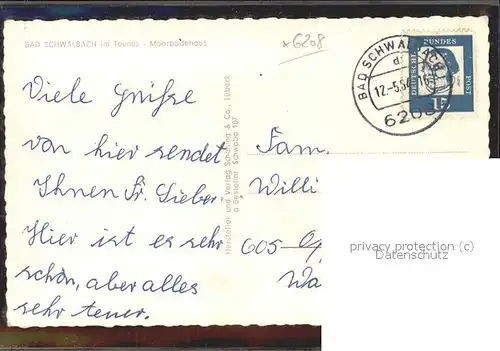 BAD SCHWALBACH im Taunus - Moorbadehaus
x6208
Viele Grüße
von hier sendet
Ihnen Fr. Sieber.
Hier ist es sehr
schön, aber alles
sehr teuer.
Hersteller und Verlag Schöning & Co., Lübeck
BAD SCHWALBACH
12.-5.6
DEUTSCHE BUNDESPOST
15
Fam.
Willi
605
Wa
privacy protection (c)
Datenschutz